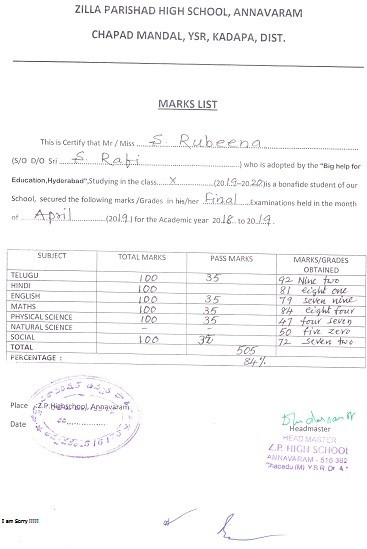 ZILLA PARISHAD HIGH SCHOOL, ANNAVARAM
CHAPAD MANDAL, YSR, KADAPA, DIST.
MARKS LIST
This is Certify that Mr / Miss S. Rubeena
(S/O D/O Sri S. Rafi) who is adopted by the "Big help for
Education,Hyderabad",Studying in the class X (2019-2020) is a bonafide student of our
School, secured the following marks /Grades in his/her Final Examinations held in the month
of April (2019) for the Academic year 2018 to 2019.
SUBJECT TOTAL MARKS PASS MARKS MARKS/GRADES OBTAINED
TELUGU 100 35 92 Nine two
HINDI 100 81 eight one
ENGLISH 100 35 79 seven nine
MATHS 100 35 84 eight four
PHYSICAL SCIENCE 100 35 47 four seven
NATURAL SCIENCE - - 50 five zero
SOCIAL 100 35 72 seven two
TOTAL 505
PERCENTAGE : 84%
Place : Z.P.Highschool, Annavaram
Date
Headmaster
HEAD MASTER
Z.P. HIGH SCHOOL
ANNAVARAM - 516 362
I am Sorry !!!!!